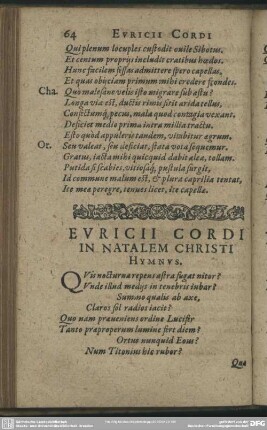 64 EVRICII CORDI
Qui plenum locuples custodit ouile Sibotus,
Et centum proprijs includit cratibus hœdos.
Hunc facilem fissas admittere spero capellas,
Et quas obijciam primum mihi credere scondes.
Cha. Quo male siue velis isto migrare sub æstu?
Longa via est, ductus rimis sitit arida tellus,
Confectumq; pecus, mala quod contagia vexant.
Deficiet medio prima intra millia tractu.
Esto quod appuleris tandem, vitabitur ægrum.
Or. Seu valeat, seu deficiat, stata vota sequemur.
Gratus, iacta mihi quicquid dabit alea, tollam.
Putida si scabies, vitiosaq; pustula surgit,
Id commune malum est, & plura capilia tentat,
Ite mea peregre, tenues licet, ite capellæ.
EVRICII CORDI
IN NATALEM CHRISTI
HYMNVS.
QVis nocturna repens astra fugat nitor?
Vnde illud medijs in tenebris iubar?
Summo qualis ab axe,
Clarus sol radios iacit?
Quo nam præueniens ordine Lucifer
Tanto præproperum lumine fert diem?
Ortus nunquid Eous?
Num Titonius hic rubor?
Qua